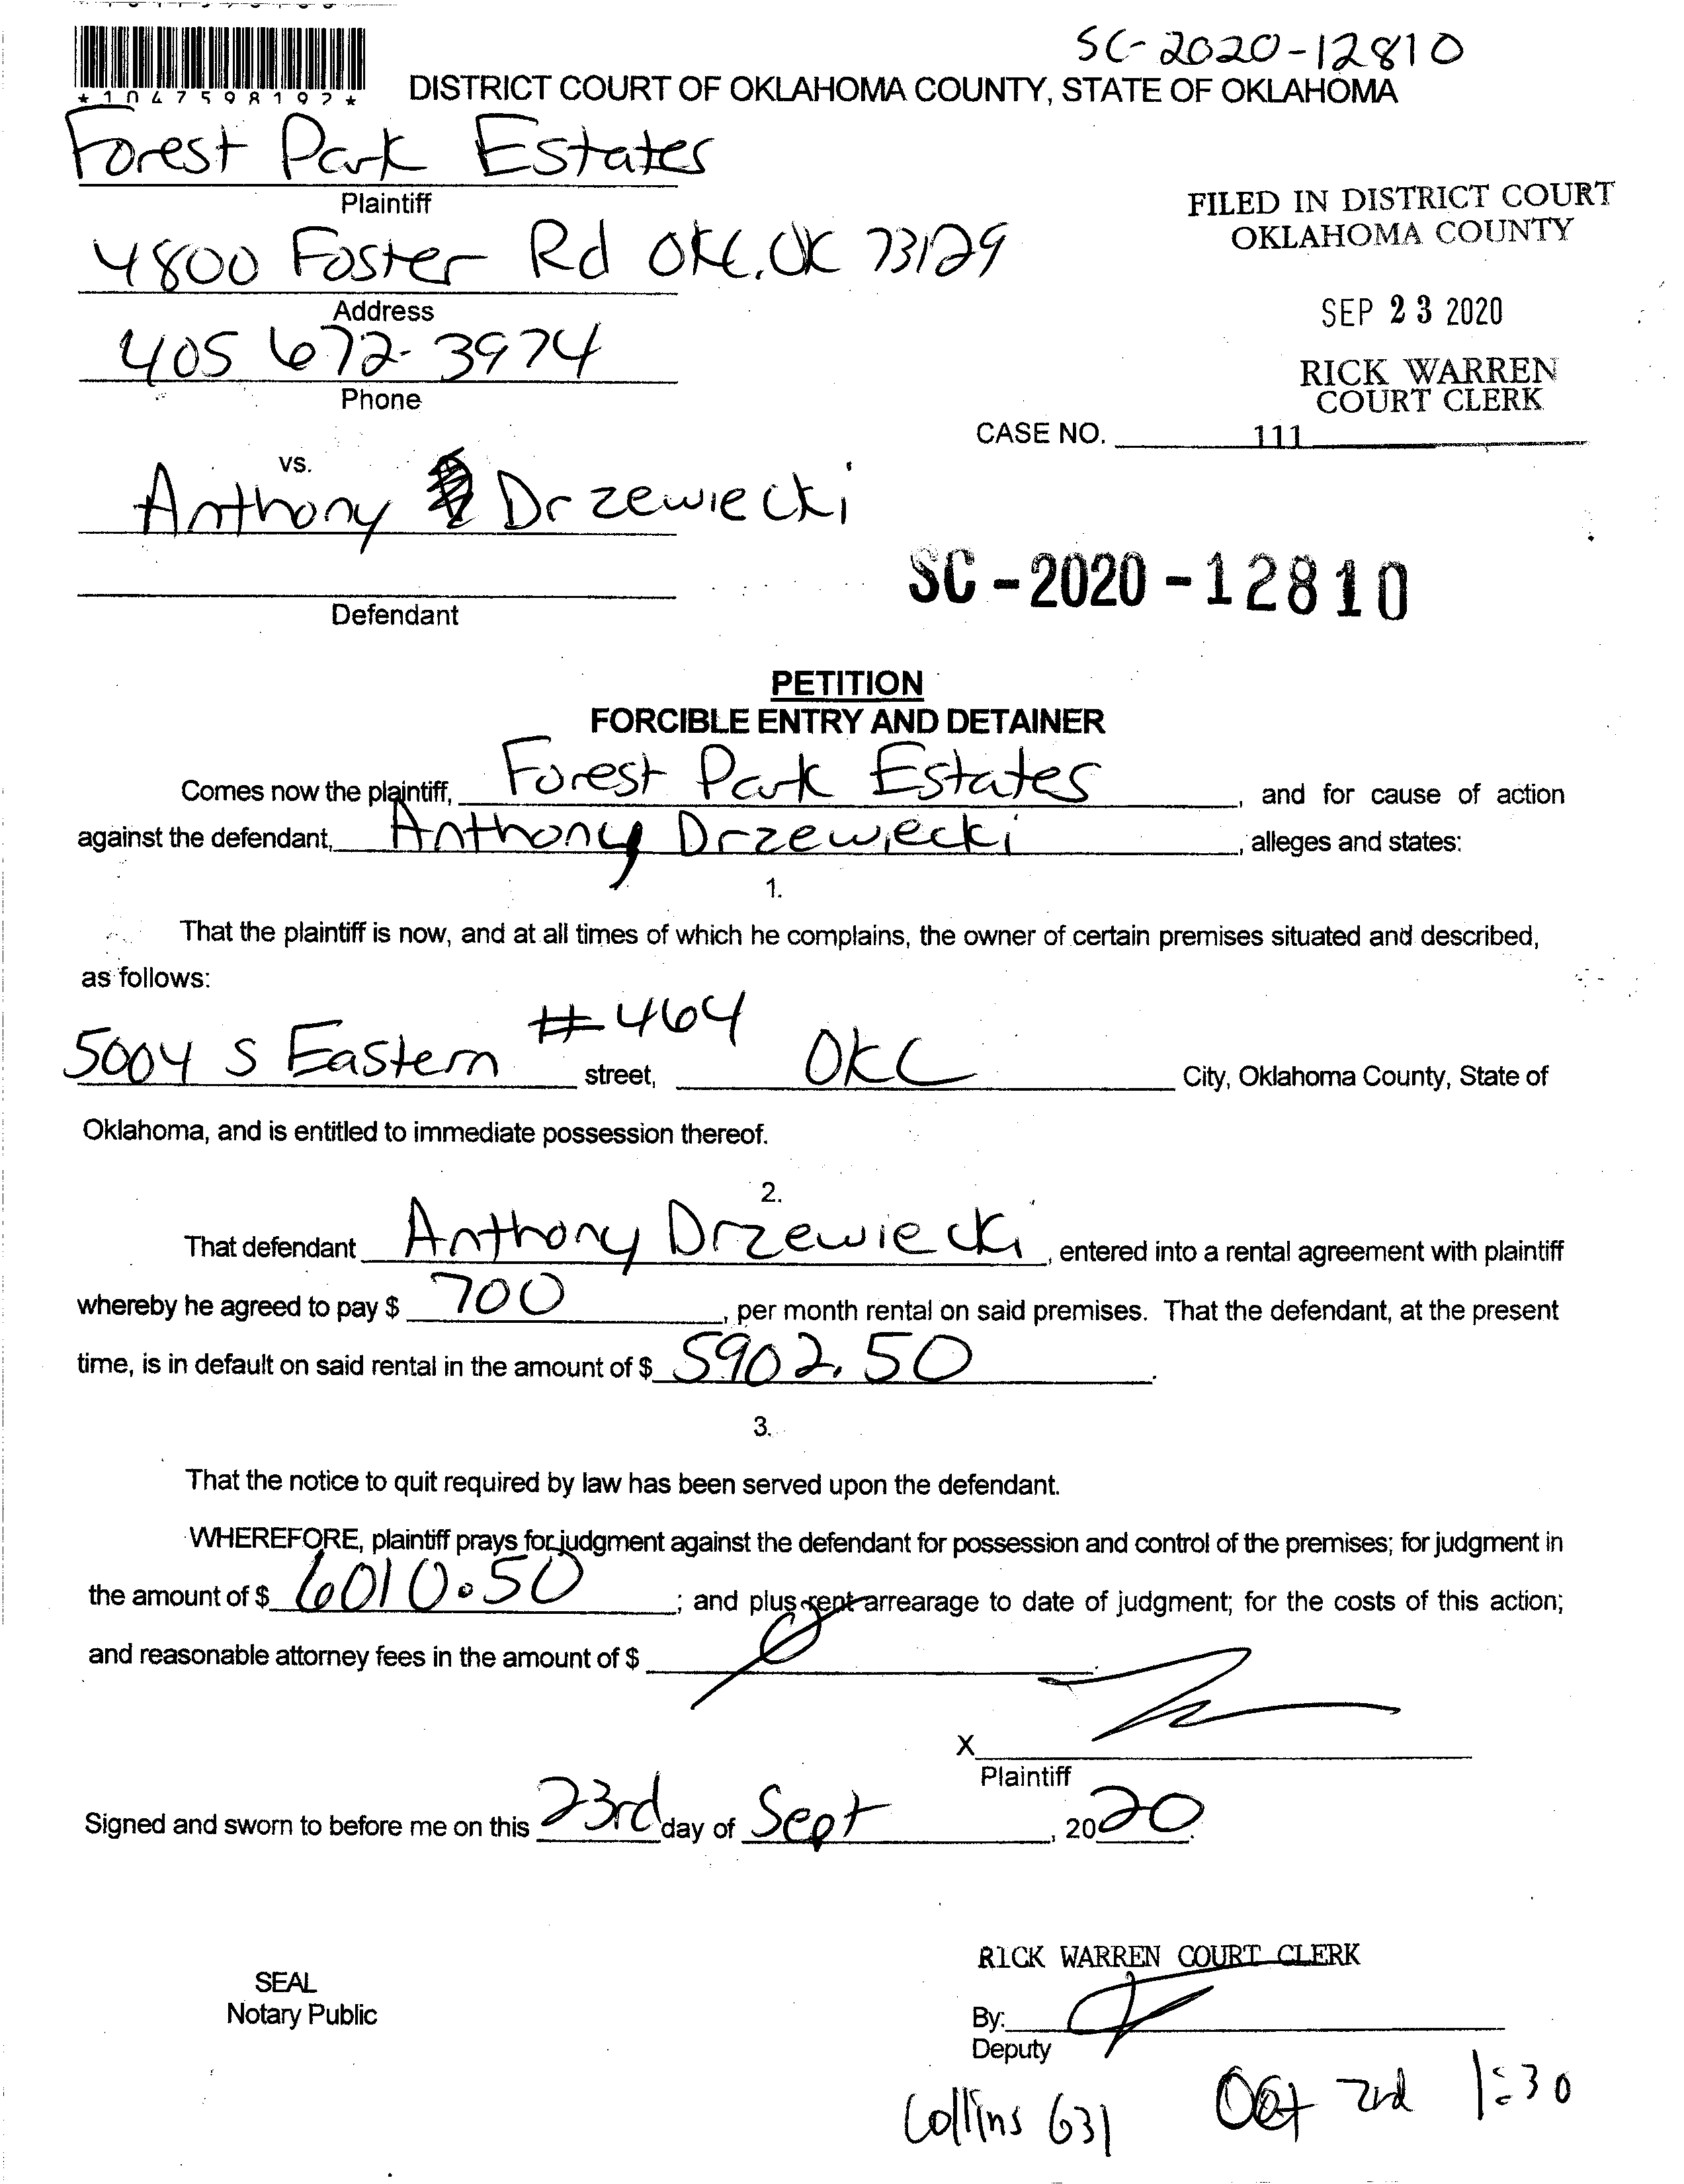 SC-2020-12810
*1047598192*
DISTRICT COURT OF OKLAHOMA COUNTY, STATE OF OKLAHOMA
Forest Park Estates
Plaintiff
FILED IN DISTRICT COURT
OKLAHOMA COUNTY
4800 Foster Rd OKC, OK 73129
Address
SEP 23 2020
405 672-3974
Phone
RICK WARREN
COURT CLERK
CASE NO. 111
vs.
Anthony Drzewiecki
SC-2020-12810
Defendant
PETITION
FORCIBLE ENTRY AND DETAINER
Comes now the plaintiff, Forest Park Estates, and for cause of action
against the defendant, Anthony Drzewiecki, alleges and states:
1.
That the plaintiff is now, and at all times of which he complains, the owner of certain premises situated and described,
as follows:
5004 S Eastern #464 street, OKC City, Oklahoma County, State of
Oklahoma, and is entitled to immediate possession thereof.
2.
That defendant Anthony Drzewiecki, entered into a rental agreement with plaintiff
whereby he agreed to pay $ 700, per month rental on said premises. That the defendant, at the present
time, is in default on said rental in the amount of $ 5902.50.
3.
That the notice to quit required by law has been served upon the defendant.
WHEREFORE, plaintiff prays for judgment against the defendant for possession and control of the premises; for judgment in
the amount of $ 6010.50; and plus rent arrearage to date of judgment; for the costs of this action;
and reasonable attorney fees in the amount of $
X
Plaintiff
Signed and sworn to before me on this 23rd day of Sept, 2020.
RICK WARREN COURT CLERK
SEAL
Notary Public
By:
Deputy
Collins 631 Oct 2nd 1:30